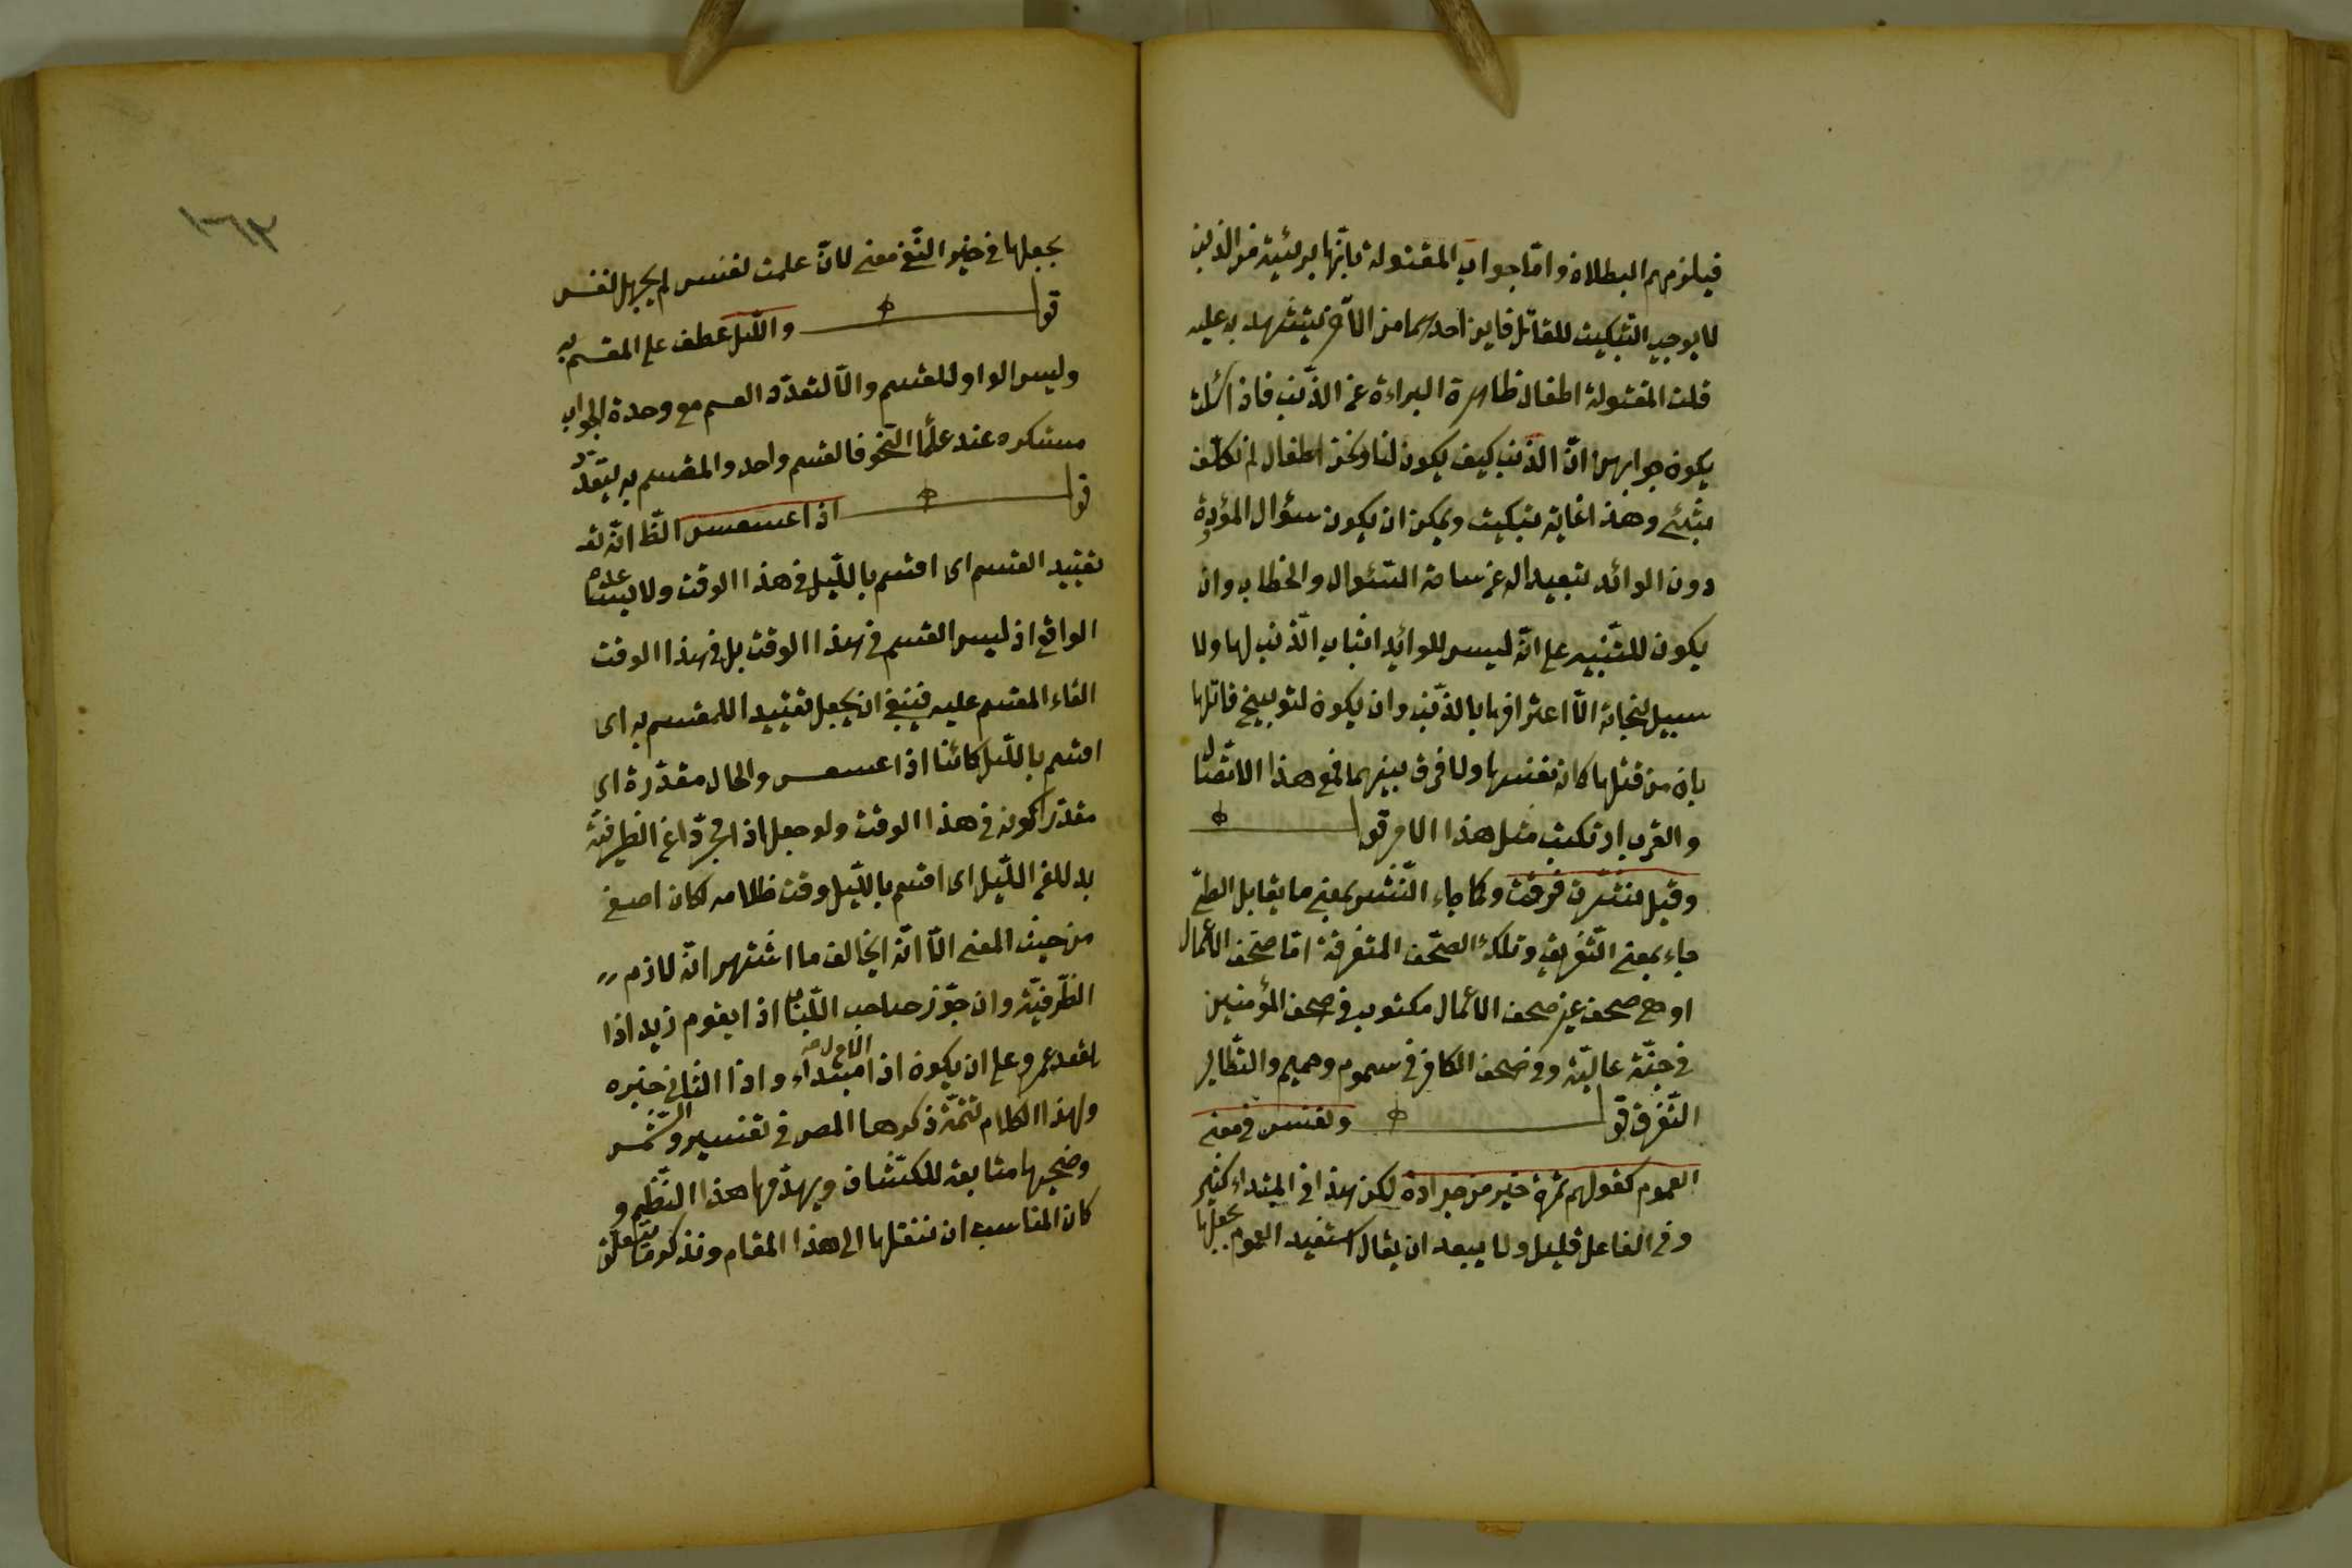 فيلزمهم البطلان واما جواب المقتولة بانها بريئة من الذنب
لا يوجب التبكيت للقاتل فاين احدهما من الآخر يستشهد به عليه
قلت المقتولة اطفال ظاهرة البراءة عن الذنب فاذا سئلت
يكون جوابهن ان الذنب كيف يكون لنا ونحن اطفال لم نكلف
بشئ وهذا غاية تبكيت ويمكن ان يكون سؤال المؤدة
دون الوائد تبعيدا له عن ساحة السئوال والخطاب وان
يكون للتنبيه على انه ليس للوائد اثبات الذنب لها ولا
سبيل لنجاته الا اعترافها بالذنب وان يكون لتوبيخ قاتلها
بان من قتلها كان نفسها ولا فرق بينهما فمع هذا الاتصال
والقرب ارتكبت مثل هذا الامر قوله
وقيل نشرت فرقت وكما جاء النشر بمعنى ما يقابل الطى
جاء بمعنى التفريق وتلك الصحف المتفرقة اما صحف الاعمال
او هى صحف غير صحف الاعمال مكتوب فى صحف المؤمنين
فى جنة عالية وفى صحف الكافر فى سموم وحميم والتطاير
التفرق قوله ونفس فى معنى
العموم كقولهم تمرة خير من جرادة لكن هذا فى المبتداء كثير
وفى الفاعل قليل ولا يبعد ان يقال استفيد العموم بجعلها
بجعلها فى حيز النفى معنى لان علمت نفس لم يجهل نفس
قوله والليل عطف على المقسم به
وليس الواو للقسم والا لتعدد القسم مع وحدة الجواب
مستكره عند علماء النحو فالقسم واحد والمقسم به يتعدد
قوله اذا عسعس الظ انه
تقييد القسم اى اقسم بالليل فى هذا الوقت ولا يساعده
الواقع اذ ليس القسم فى هذا الوقت بل فى هذا الوقت
القاء المقسم عليه فينبغى ان يجعل تقييدا للمقسم به اى
اقسم بالليل كائنا اذا عسعس والحال مقدرة اى
مقدرا كونه فى هذا الوقت ولو جعل اذا مجردا عن الظرفية
بدلا من الليل اى اقسم بالليل وقت ظلامه لكان اصفى
من حيث المعنى الا انه يخالف ما اشتهر انه لازم
الظرفية وان جوز صاحب اللباب اذا يقوم زيد اذا
يقعد عمرو على ان يكون اذا الاولى مبتداء واذا الثانى خبره
ولهذا الكلام تتمة ذكرها المصر فى تفسير والشمس
وضحيها متابعة للكشاف ويهدمها هذا النظم و
كان المناسب ان ننقلها الى هذا المقام ونذكر ما يتعلق